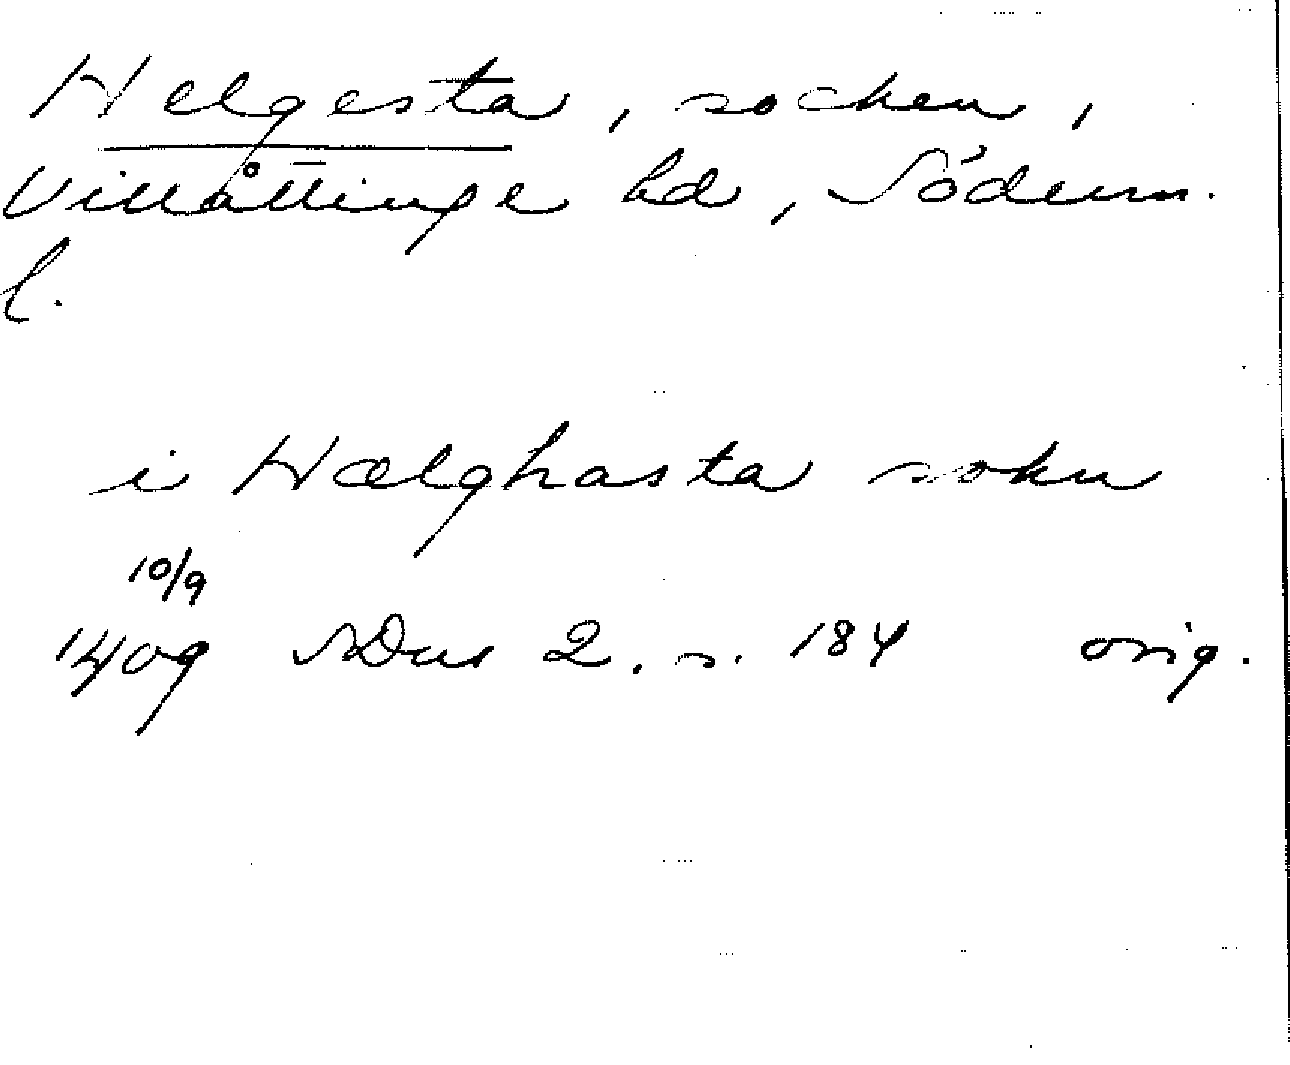 Helgesta, socken,
Villåttinge hd, Söderm.
l.
i Hælghasta sokn
10/9
1409 SDns 2. s. 184 orig.